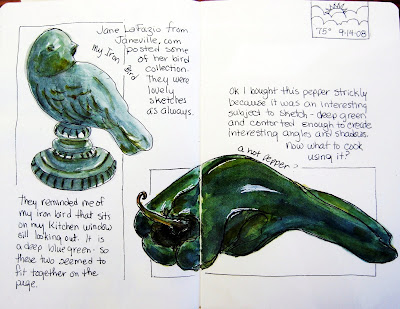 Jane LaFazio from
Janeville.com
posted some
of her bird
collection.
They were
lovely
sketches
as always.
My Iron Bird
They reminded me of
my iron bird that sits
on my kitchen window
sill looking out. It is
a deep blue green. So
these two seemed to
fit together on the
page.
75° 9·14·08
Ok I bought this pepper strickly
because it was an interesting
subject to sketch - deep green
and contorted enough to create
interesting angles and shadows.
Now what to cook
using it?
a hot pepper